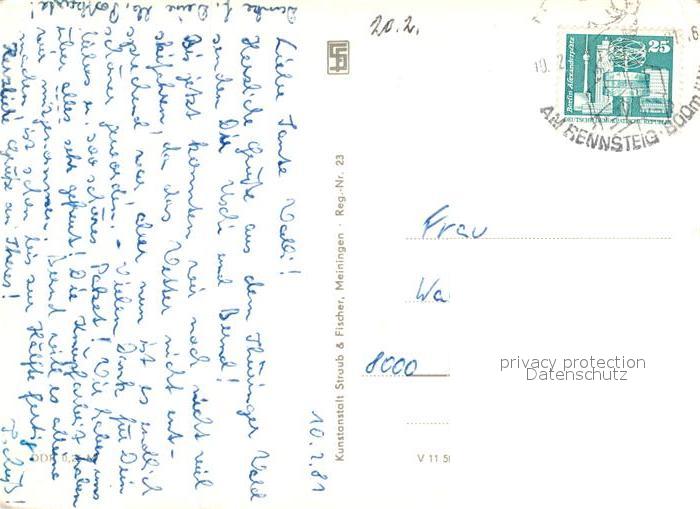 Danke f. Deine lb.
20.2.
10.2.81
Liebe Tante Valli!
Herzliche Grüße aus dem Thüringer Wald
senden Dir Uschi und Bernd!
Bis jetzt konnten wir noch nicht viel
skifahren, da das Wetter nicht ent-
sprechend war, aber nun ist es endlich
schöner geworden. – Vielen Dank für Dein
liebes u. sooo schönes Paket! Wir haben uns
über alles sehr gefreut! Die Knüpfarbeit haben
wir mitgenommen. Bernd will es alleine
machen, ist schon bis zur Hälfte fertig.
Herzliche Grüße an Theres!
Tschüß!
Kunstanstalt Straub & Fischer, Meiningen · Reg.-Nr. 23
Berlin, Alexanderplatz
25
DEUTSCHE DEMOKRATISCHE REPUBLIK
AM RENNSTEIG · 800m
Frau
Wal
8000
privacy protection
Datenschutz
V 11 5
DDR 0,2